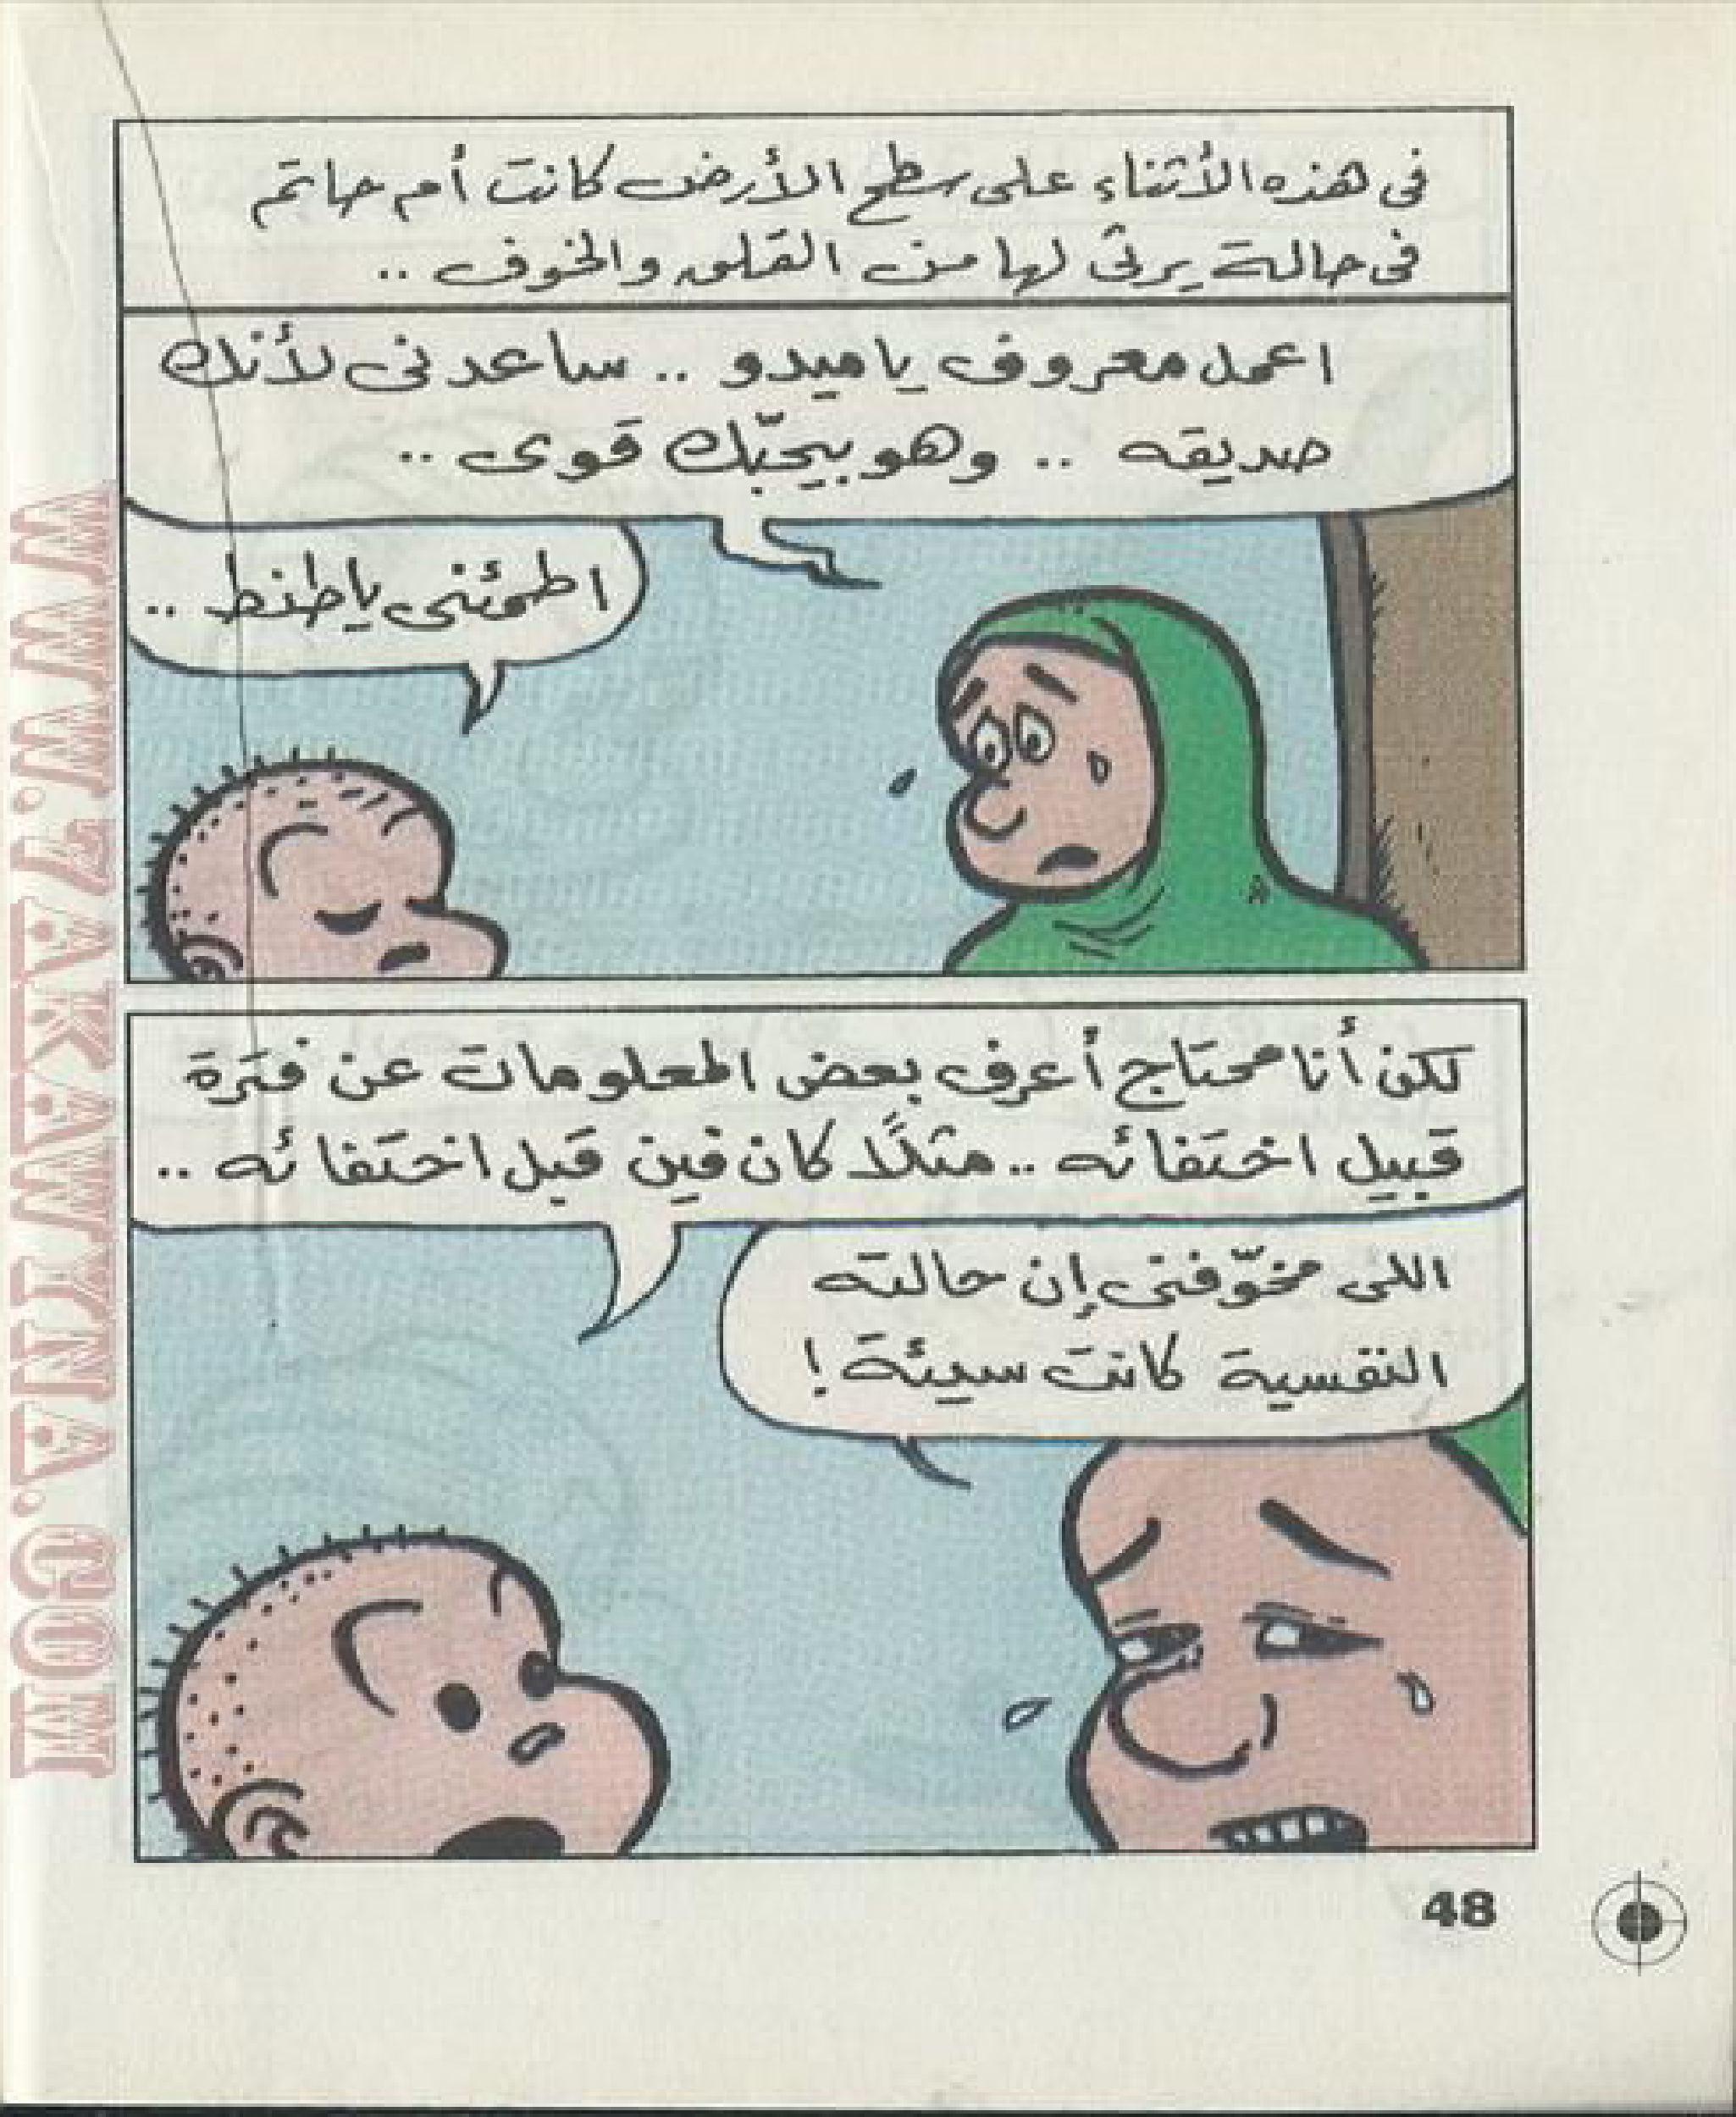 في هذه الأثناء على سطح الأرض كانت أم حاتم
في حالة يرثى لها من القلق والخوف ..
اعمل معروف يا ميدو .. ساعدني لأنك
صديقه .. وهو بيحبّك قوى ..
اطمئنى يا طنط ..
لكن أنا محتاج أعرف بعض المعلومات عن فترة
قبيل اختفائه .. مثلًا كان فين قبل اختفائه ..
اللى مخوّفنى إن حالته
النفسية كانت سيئة !
48
WWW.ZAKAWKINA.COM